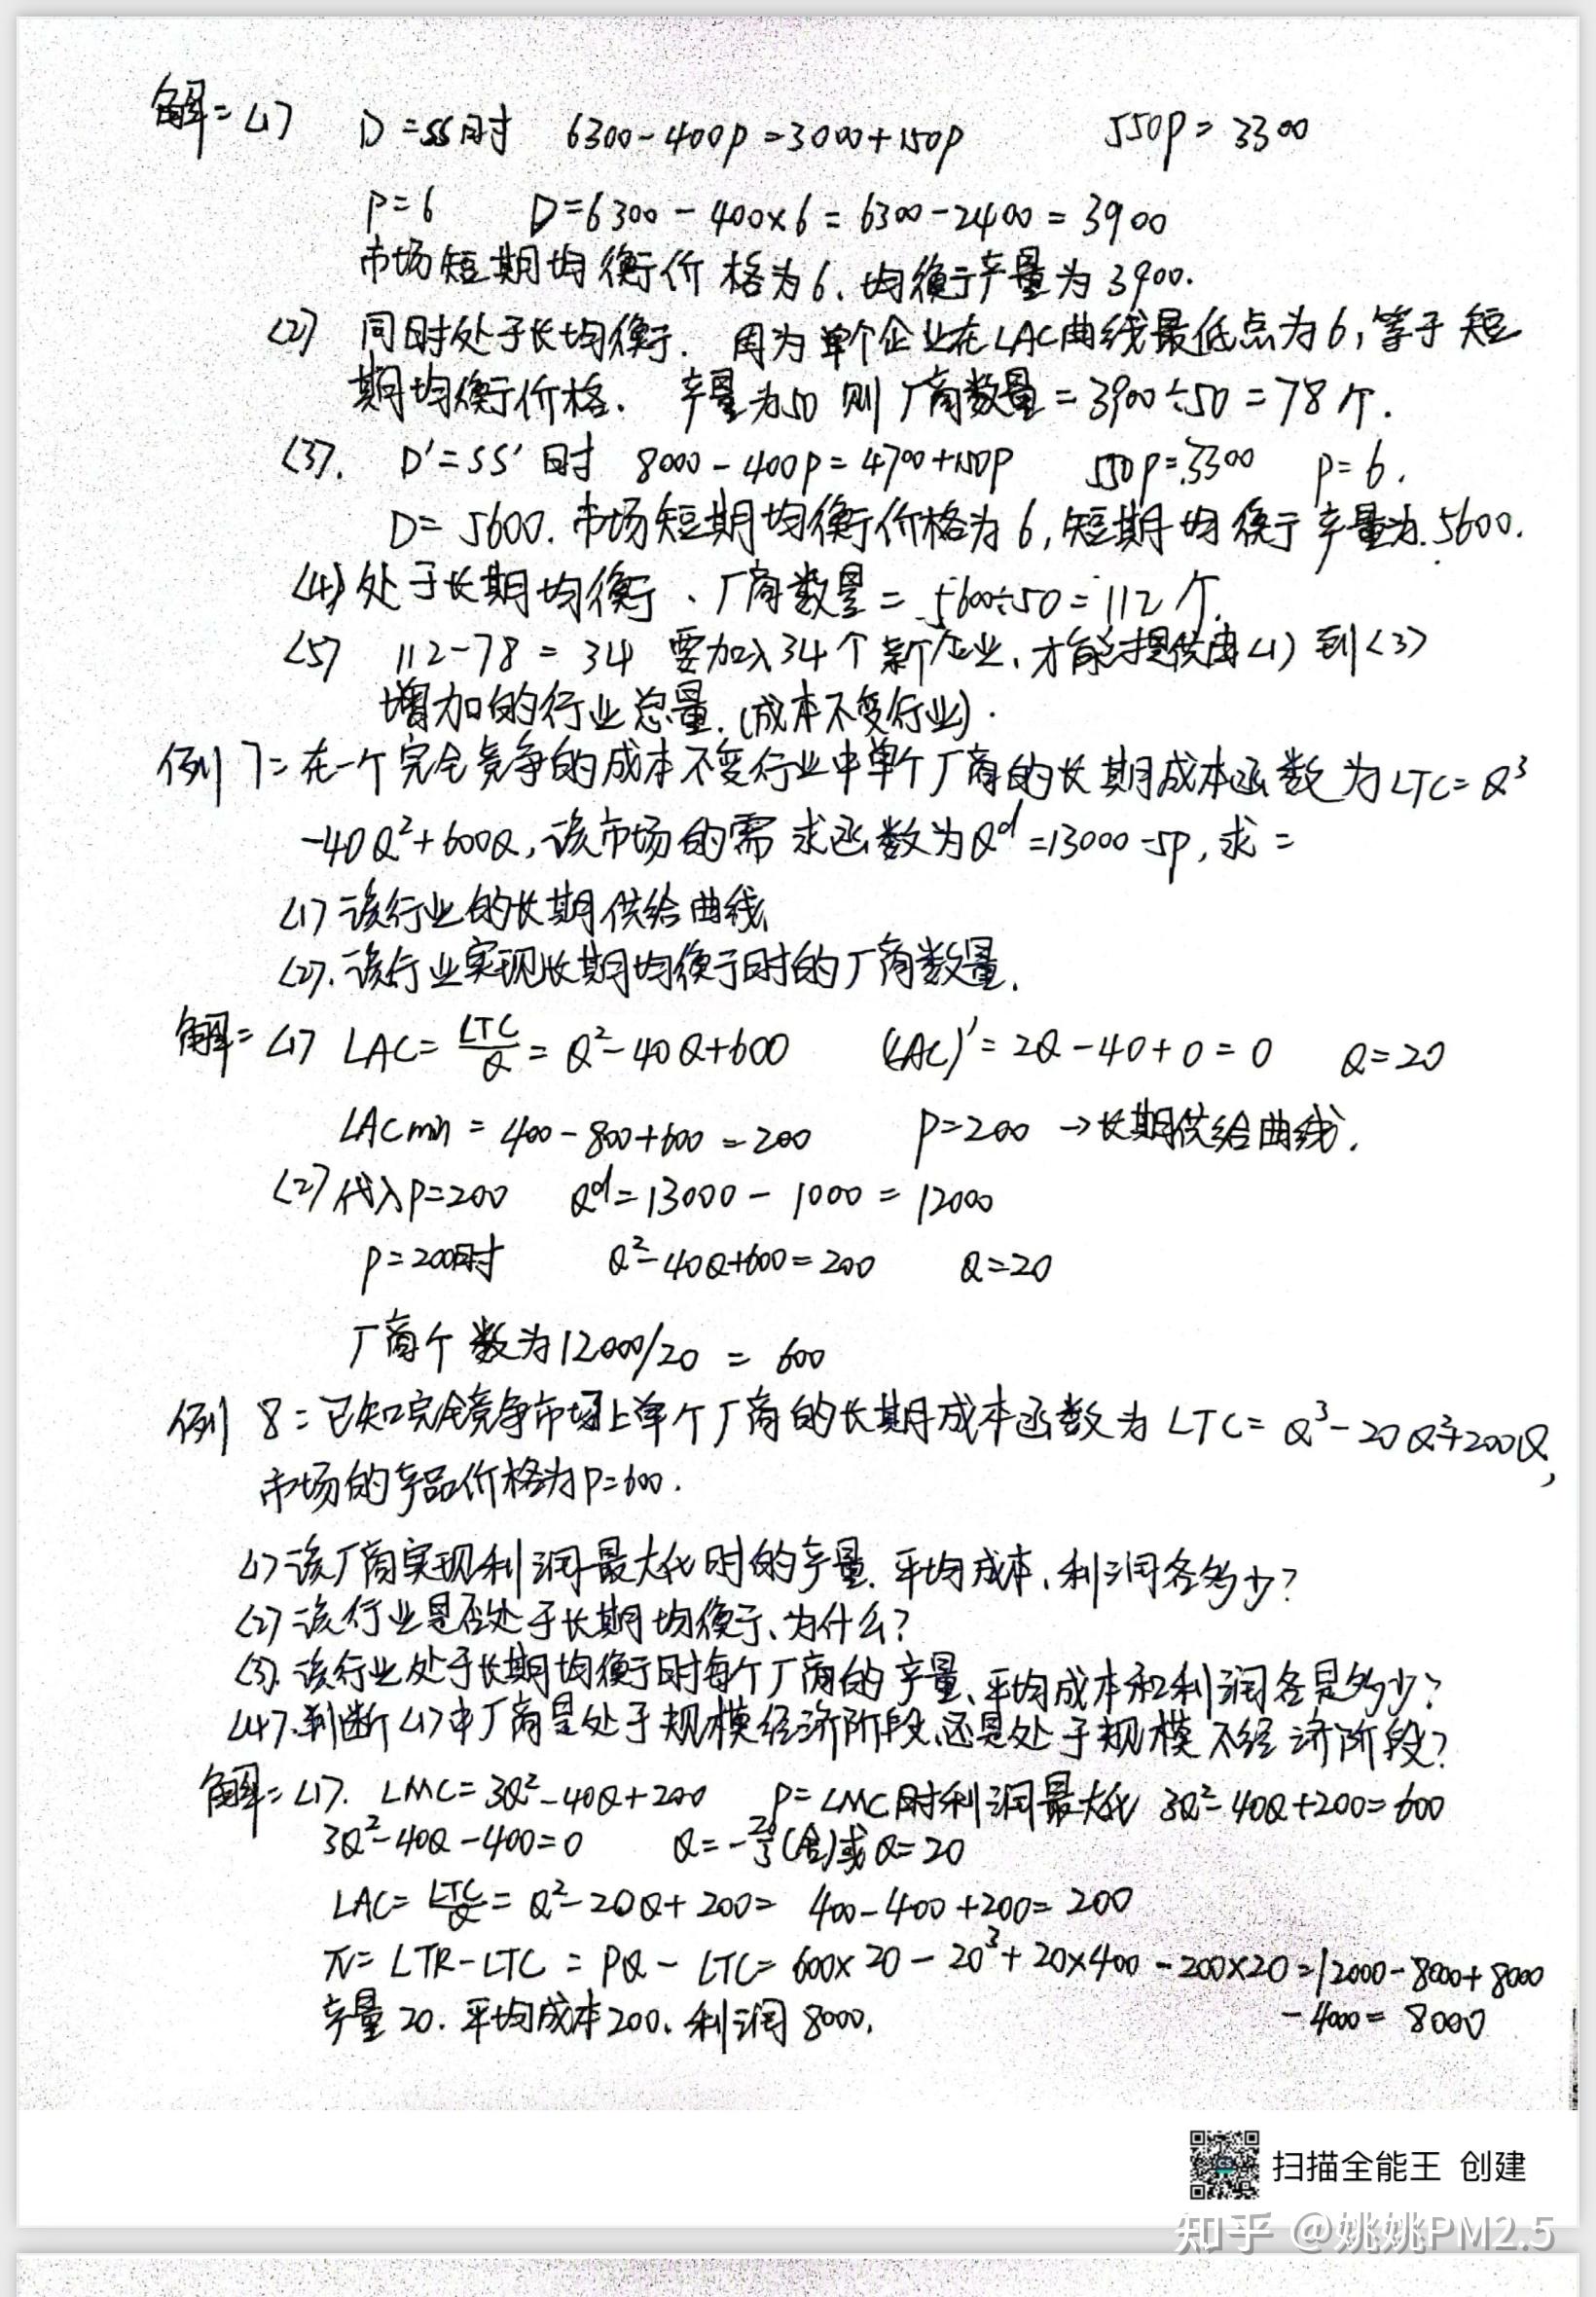 解：(1) D=SS时 6300-400P=3000+150P 550P=3300
P=6 D=6300-400×6=6300-2400=3900
市场短期均衡价格为6、均衡产量为3900.
(2) 同时处于长均衡. 因为单个企业在LAC曲线最低点为6,等于短
期均衡价格. 产量为50 则厂商数量=3900÷50=78个.
(3). D'=SS'时 8000-400P=4700+150P 550P=3300 P=6.
D=5600.市场短期均衡价格为6,短期均衡产量为5600.
(4)处于长期均衡、厂商数量=5600÷50=112个.
(5) 112-78=34 要加入34个新企业、才能提供由(1)到(3)
增加的行业总量.(成本不变行业).
例7：在一个完全竞争的成本不变行业中单个厂商的长期成本函数为LTC=Q³
-40Q²+600Q,该市场的需求函数为Qᵈ=13000-5P,求：
(1)该行业的长期供给曲线
(2).该行业实现长期均衡时的厂商数量.
解：(1) LAC=LTC/Q=Q²-40Q+600 (LAC)'=2Q-40+0=0 Q=20
LACmin=400-800+600=200 P=200→长期供给曲线.
(2)代入P=200 Qᵈ=13000-1000=12000
P=200时 Q²-40Q+600=200 Q=20
厂商个数为12000/20=600
例8：已知完全竞争市场上单个厂商的长期成本函数为LTC=Q³-20Q²+200Q,
市场的产品价格为P=600.
(1)该厂商实现利润最大化时的产量.平均成本、利润各多少?
(2)该行业是否处于长期均衡、为什么?
(3).该行业处于长期均衡时每个厂商的产量、平均成本和利润各是多少?
(4).判断(1)中厂商是处于规模经济阶段、还是处于规模不经济阶段?
解：(1). LMC=3Q²-40Q+200 P=LMC时利润最大化 3Q²-40Q+200=600
3Q²-40Q-400=0 Q=-20/3(舍)或Q=20
LAC=LTC/Q=Q²-20Q+200=400-400+200=200
π=LTR-LTC=PQ-LTC=600×20-20³+20×400-200×20=12000-8000+8000
-4000=8000
产量20.平均成本200、利润8000.
扫描全能王 创建
知乎 @姚姚PM2.5